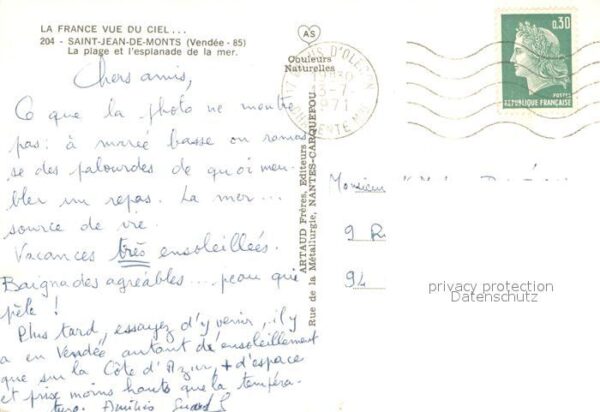 LA FRANCE VUE DU CIEL...
204 - SAINT-JEAN-DE-MONTS (Vendée - 85)
La plage et l'esplanade de la mer.
Chers amis,
Ce que la photo ne montre
pas : à marée basse on ramas
se des palourdes de quoi meu-
bler un repas. La mer...
source de vie.
Vacances très ensoleillées.
Baignades agréables... peau qui
pèle !
Plus tard, essayez d'y venir, il y
a en Vendée autant d'ensoleillement
que sur la Côte d'Azur, + d'espace
et prix moins hauts que la tempéra-
ture. Amitiés
AS
Couleurs
Naturelles
ARTAUD Frères, Editeurs
Rue de la Métallurgie, NANTES-CARQUEFOU
D'OLERON
13-7
1971
CHARENTE MME
0,30
POSTES
RÉPUBLIQUE FRANÇAISE
Monsieur
9 R
94
privacy protection
Datenschutz